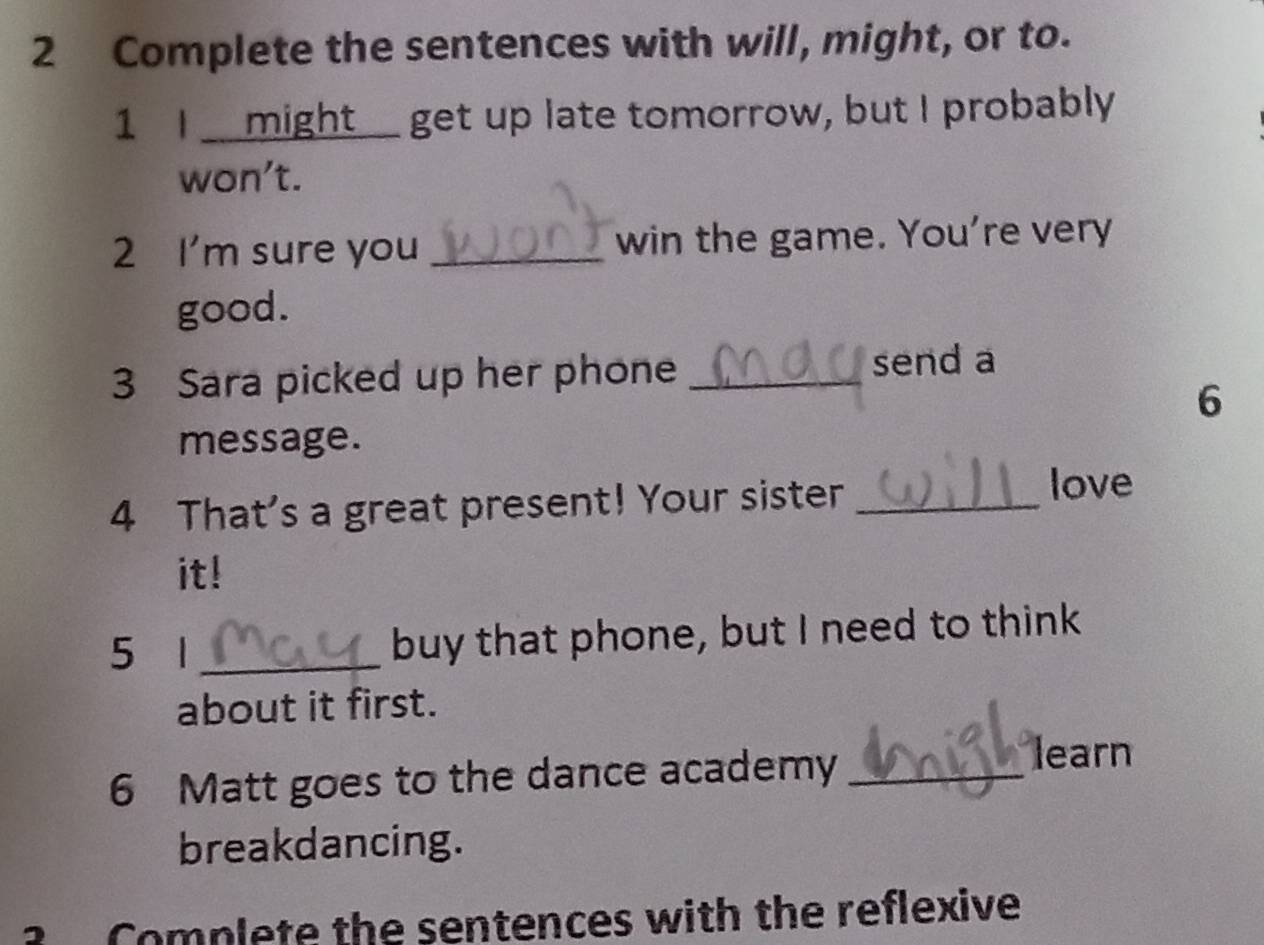 2 Complete the sentences with will, might, or to.
1 I might get up late tomorrow, but I probably
won't.
2 I'm sure you won't win the game. You're very
good.
3 Sara picked up her phone may send a
6
message.
4 That's a great present! Your sister will love
it!
5 I May buy that phone, but I need to think
about it first.
6 Matt goes to the dance academy learn
breakdancing.
Complete the sentences with the reflexive